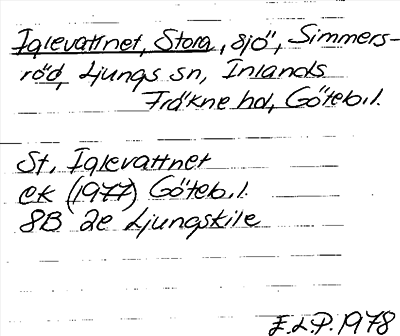 Iglevattnet, Stora, sjö, Simmers-
röd, Ljungs sn, Inlands
Fräkne hd, Göteb.l.
St. Iglevattnet
ek (1977) Göteb.l.
8B 2e Ljungskile
E.L.P. 1978